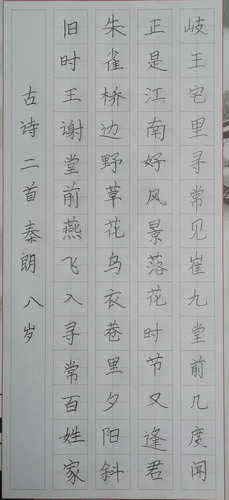 岐王宅里寻常见崔九堂前几度闻
正是江南好风景落花时节又逢君
朱雀桥边野草花乌衣巷里夕阳斜
旧时王谢堂前燕飞入寻常百姓家
古诗二首秦朗八岁